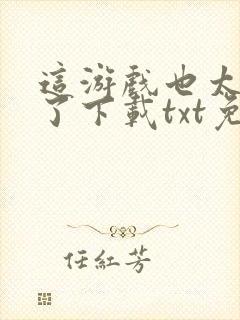 這游戲也太
了下載txt免
任紅芳